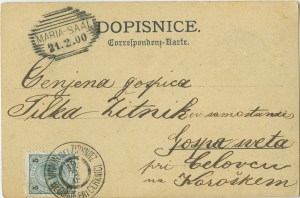 MARIA-SAAL
21.2.00
DOPISNICE.
Correspondenz-Karte.
Cenjena gospica
Tilka Žitnik v samostanu
Gospa sveta
pri Celovcu
na Koroškem
5 5